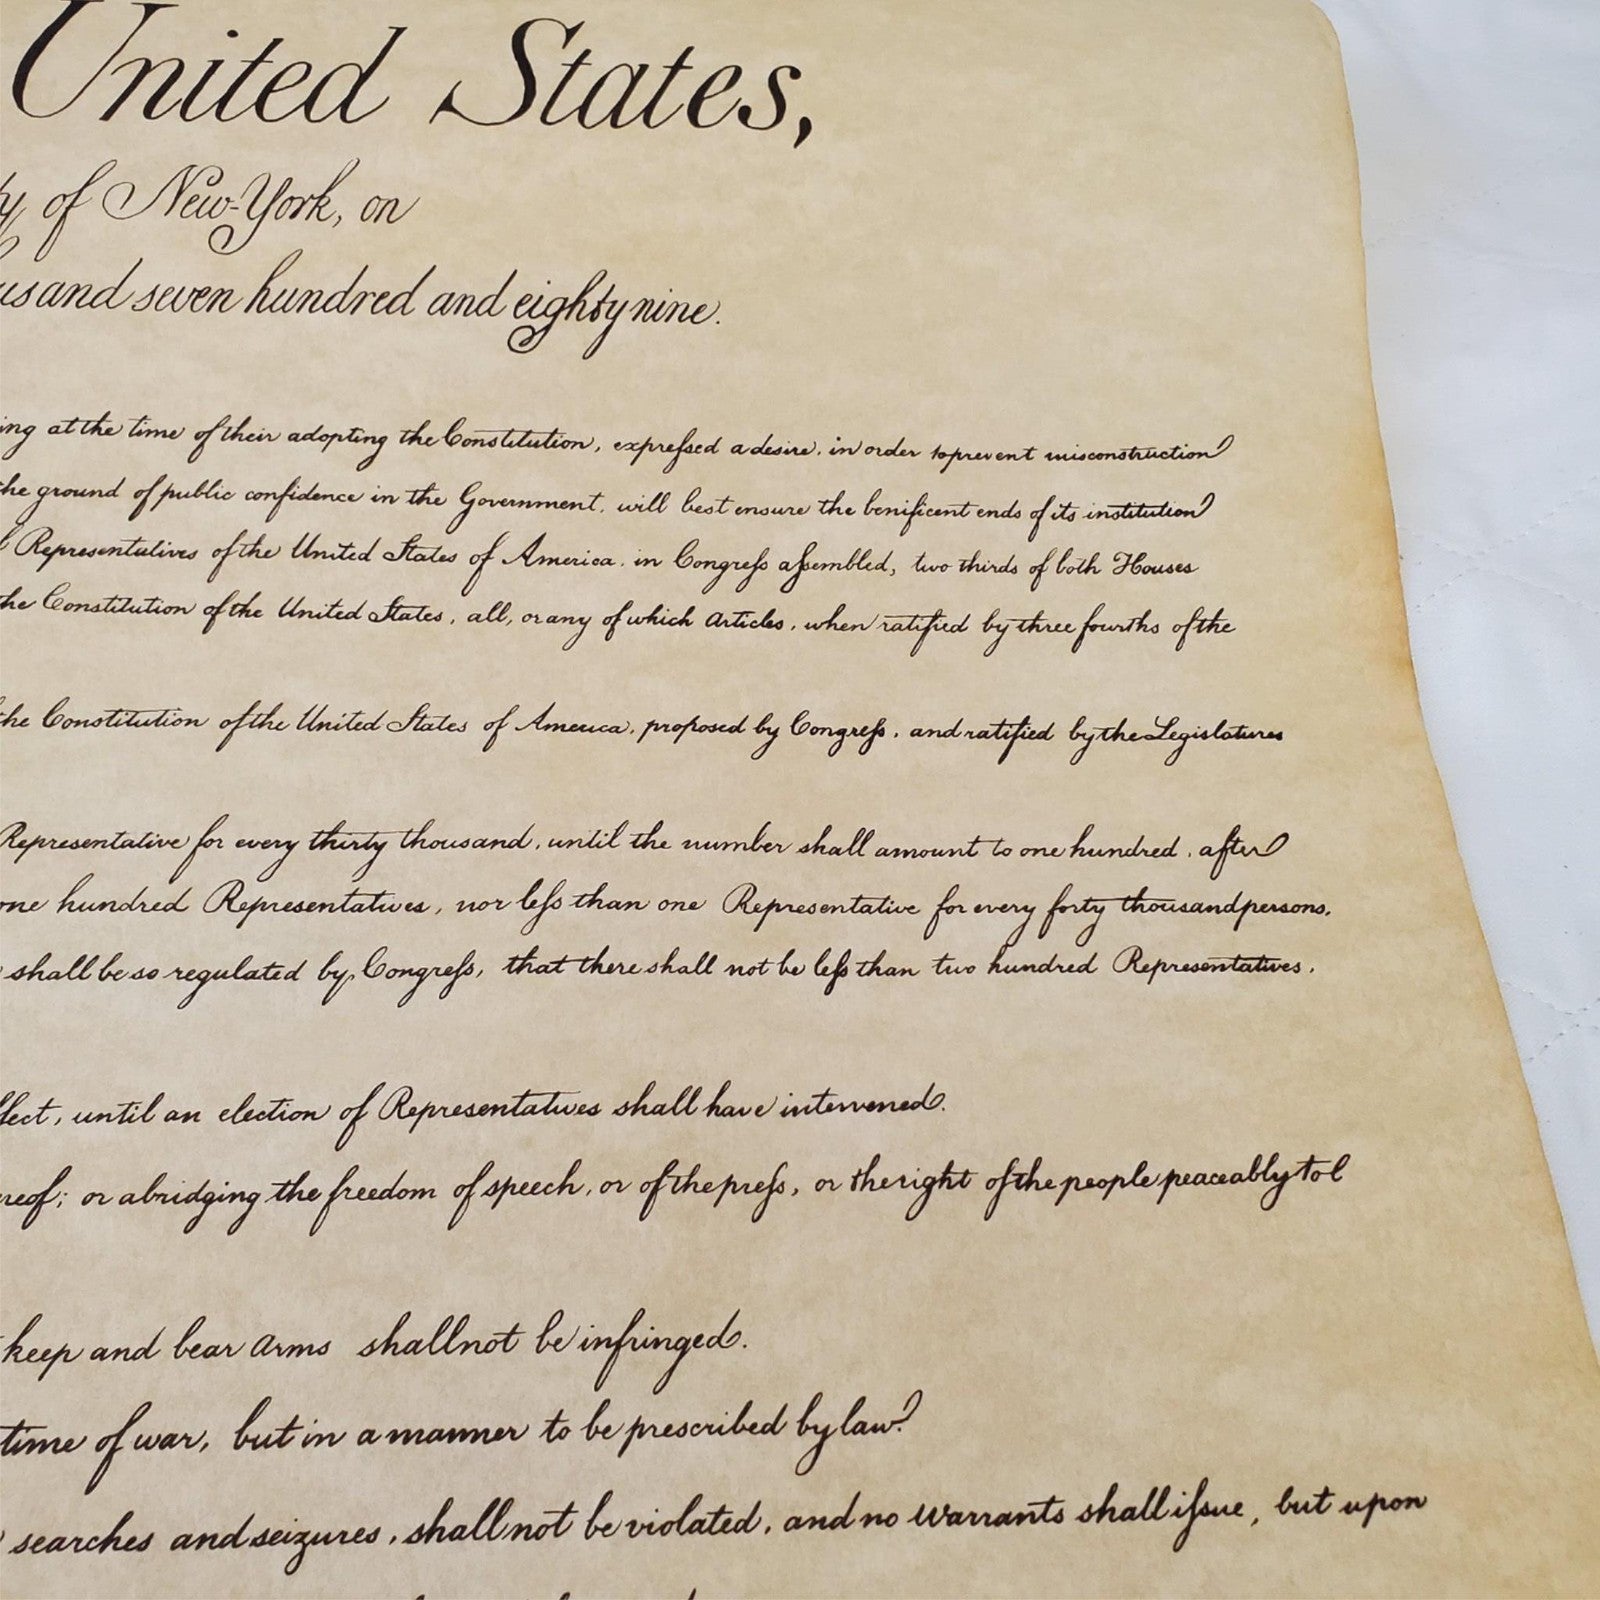 United States,
of New-York, on
usand seven hundred and eighty nine.
ing at the time of their adopting the Constitution, expreſsed a desire, in order to prevent misconstruction
the ground of public confidence in the Government, will best ensure the benificent ends of its institution
Representatives of the United States of America, in Congreſs aſsembled, two thirds of both Houses
the Constitution of the United States, all, or any of which Articles, when ratified by three fourths of the
the Constitution of the United States of America, proposed by Congreſs, and ratified by the Legislatures
Representative for every thirty thousand, until the number shall amount to one hundred, after
one hundred Representatives, nor leſs than one Representative for every forty thousand persons.
shall be so regulated by Congreſs, that there shall not be leſs than two hundred Representatives,
ffect, until an election of Representatives shall have intervened.
reof; or abridging the freedom of speech, or of the preſs, or the right of the people peaceably to
keep and bear Arms shall not be infringed.
time of war, but in a manner to be prescribed by law.
searches and seizures, shall not be violated, and no Warrants shall iſsue, but upon